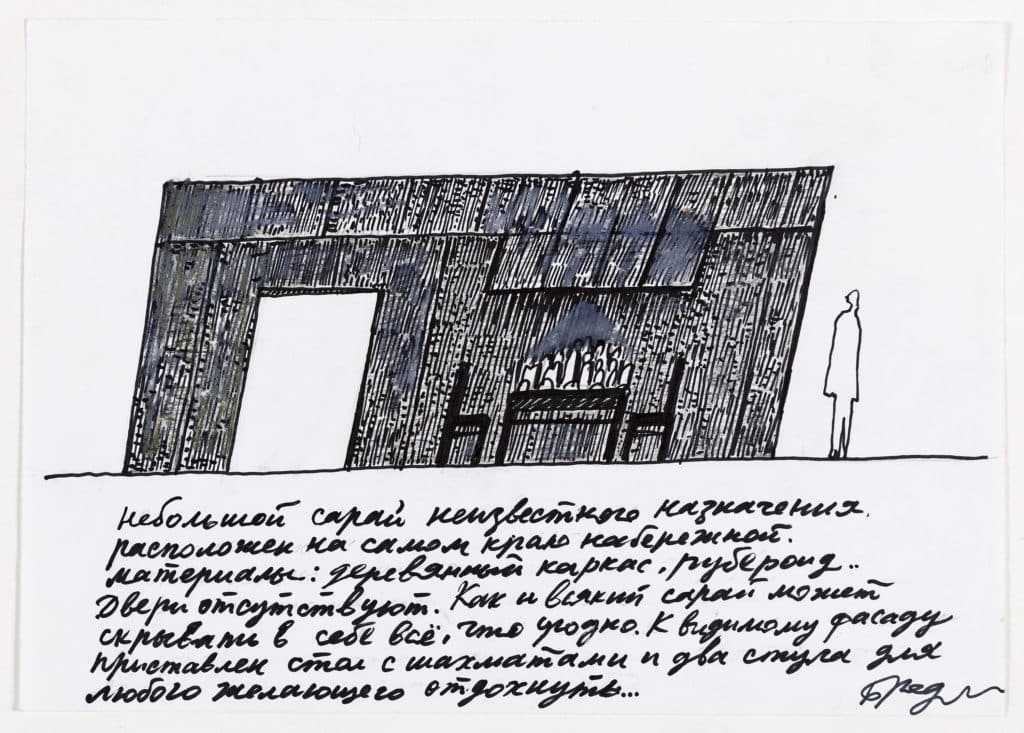 небольшой сарай неизвестного назначения.
расположен на самом краю набережной.
материалы: деревянный каркас, рубероид..
Двери отсутствуют. Как и всякий сарай может
скрывать в себе всё, что угодно. К видимому фасаду
приставлен стол с шахматами и два стула для
любого желающего отдохнуть...